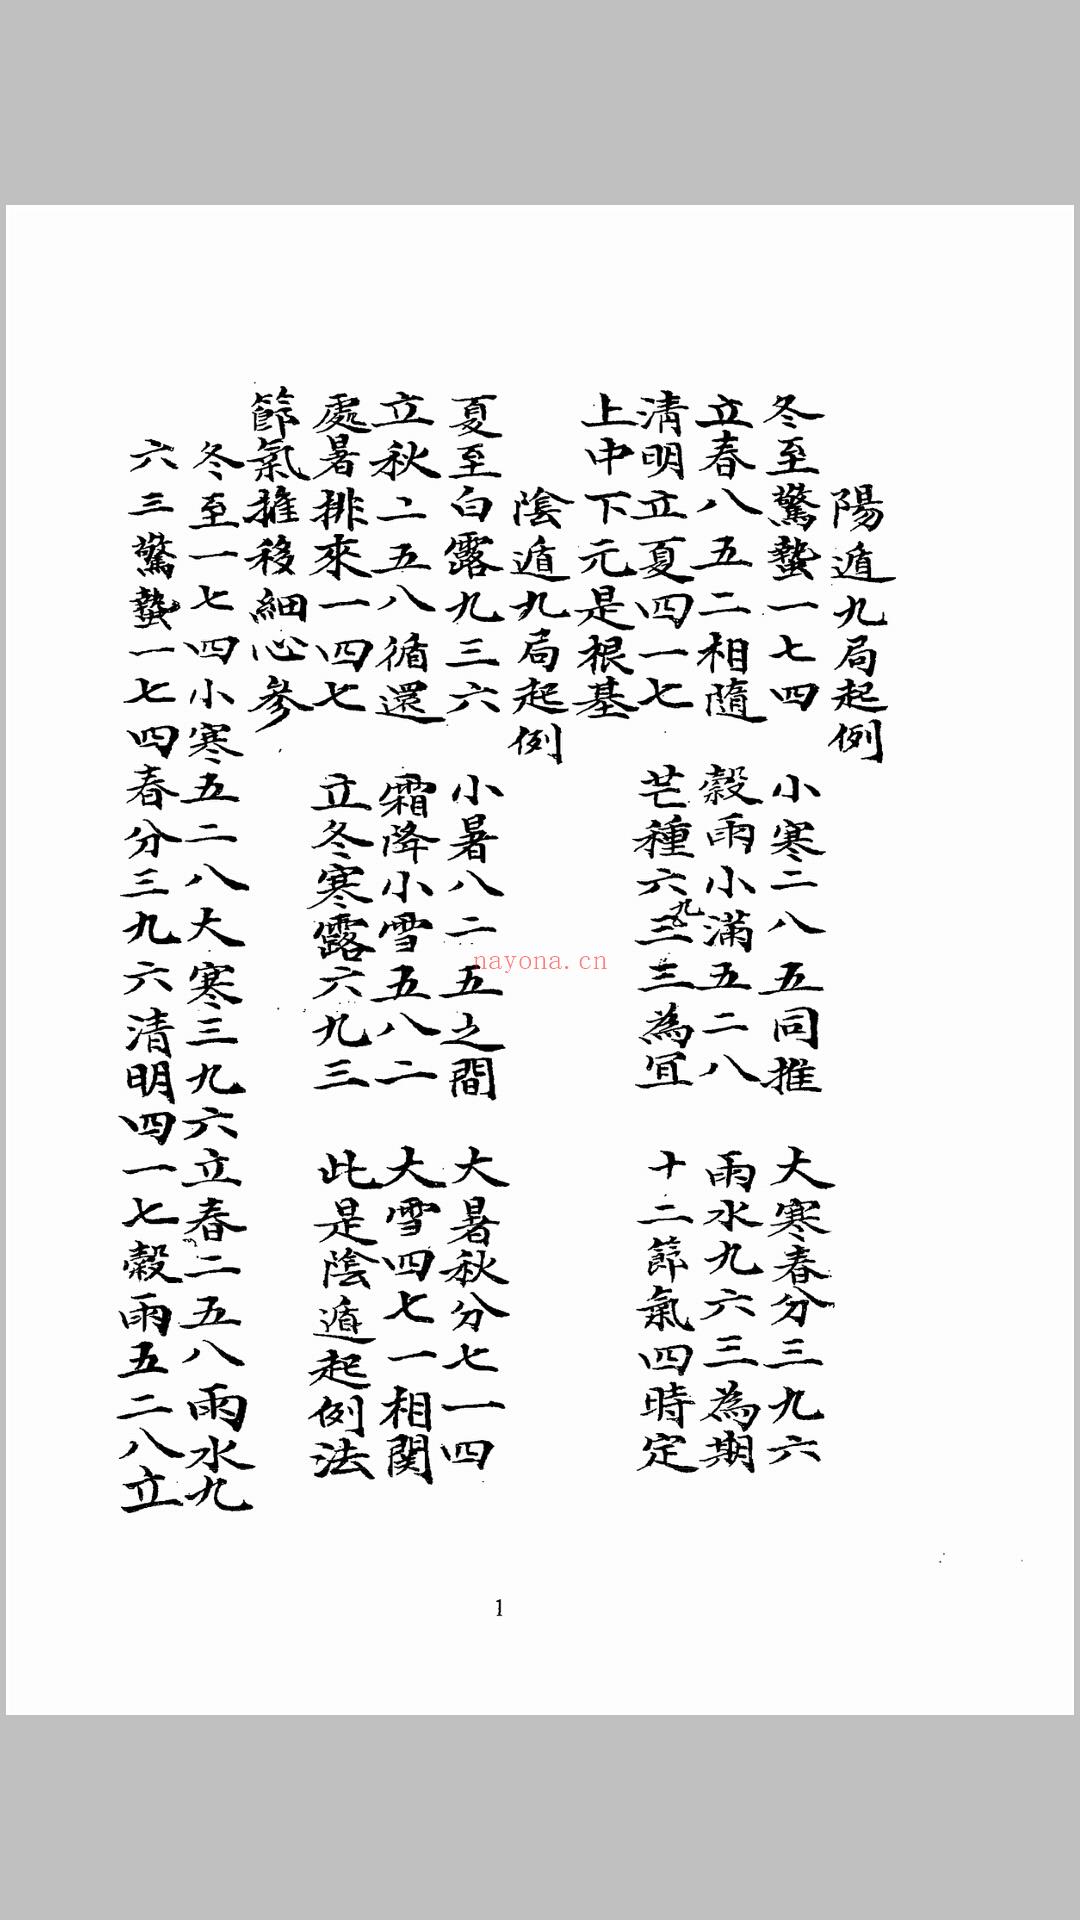 陽遁九局起例
冬至驚蟄一七四 小寒二八五同推 大寒春分三九六
立春八五二相隨 穀雨小滿五二八 雨水九六三為期
清明立夏四一七 芒種六三三為宜 十二節氣四時定
九
上中下元是根基
陰遁九局起例
夏至白露九三六 小暑八二五之間 大暑秋分七一四
立秋二五八循還 霜降小雪五八二 大雪四七一相関
處暑排來一四七 立冬寒露六九三 此是陰遁起例法
節氣推移細心參
冬至一七四小寒五二八大寒三九六立春二五八雨水九
六三驚蟄一七四春分三九六清明四一七穀雨五二八立
nayona.cn
1